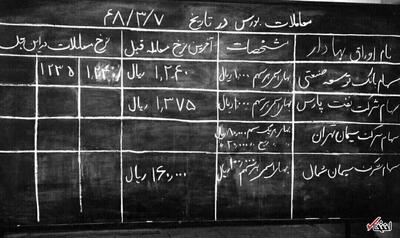 معاملات بورس در تاریخ ۶۸/۳/۷
نام اوراق بهادار مشخصات آخرین نرخ معامله قبل نرخ معاملات در این
سهام بانک توسعه صنعتی بهای اسمی هر سهم ۱۰۰۰ ریال ۱,۲۴۰ ریال ۱,۲۴۰ ۱۲۳۵
سهام شرکت نفت پارس بهای اسمی هر سهم ۱۰۰۰ ریال ۱,۳۷۵ ریال
سهام شرکت سیمان تهران بهای هر یک سهم ۱۰,۰۰۰ ریال
سهام شرکت سیمان شمال بهای اسمی هر سهم ۱۰,۰۰۰ ریال ۱۶۰,۰۰۰ ریال